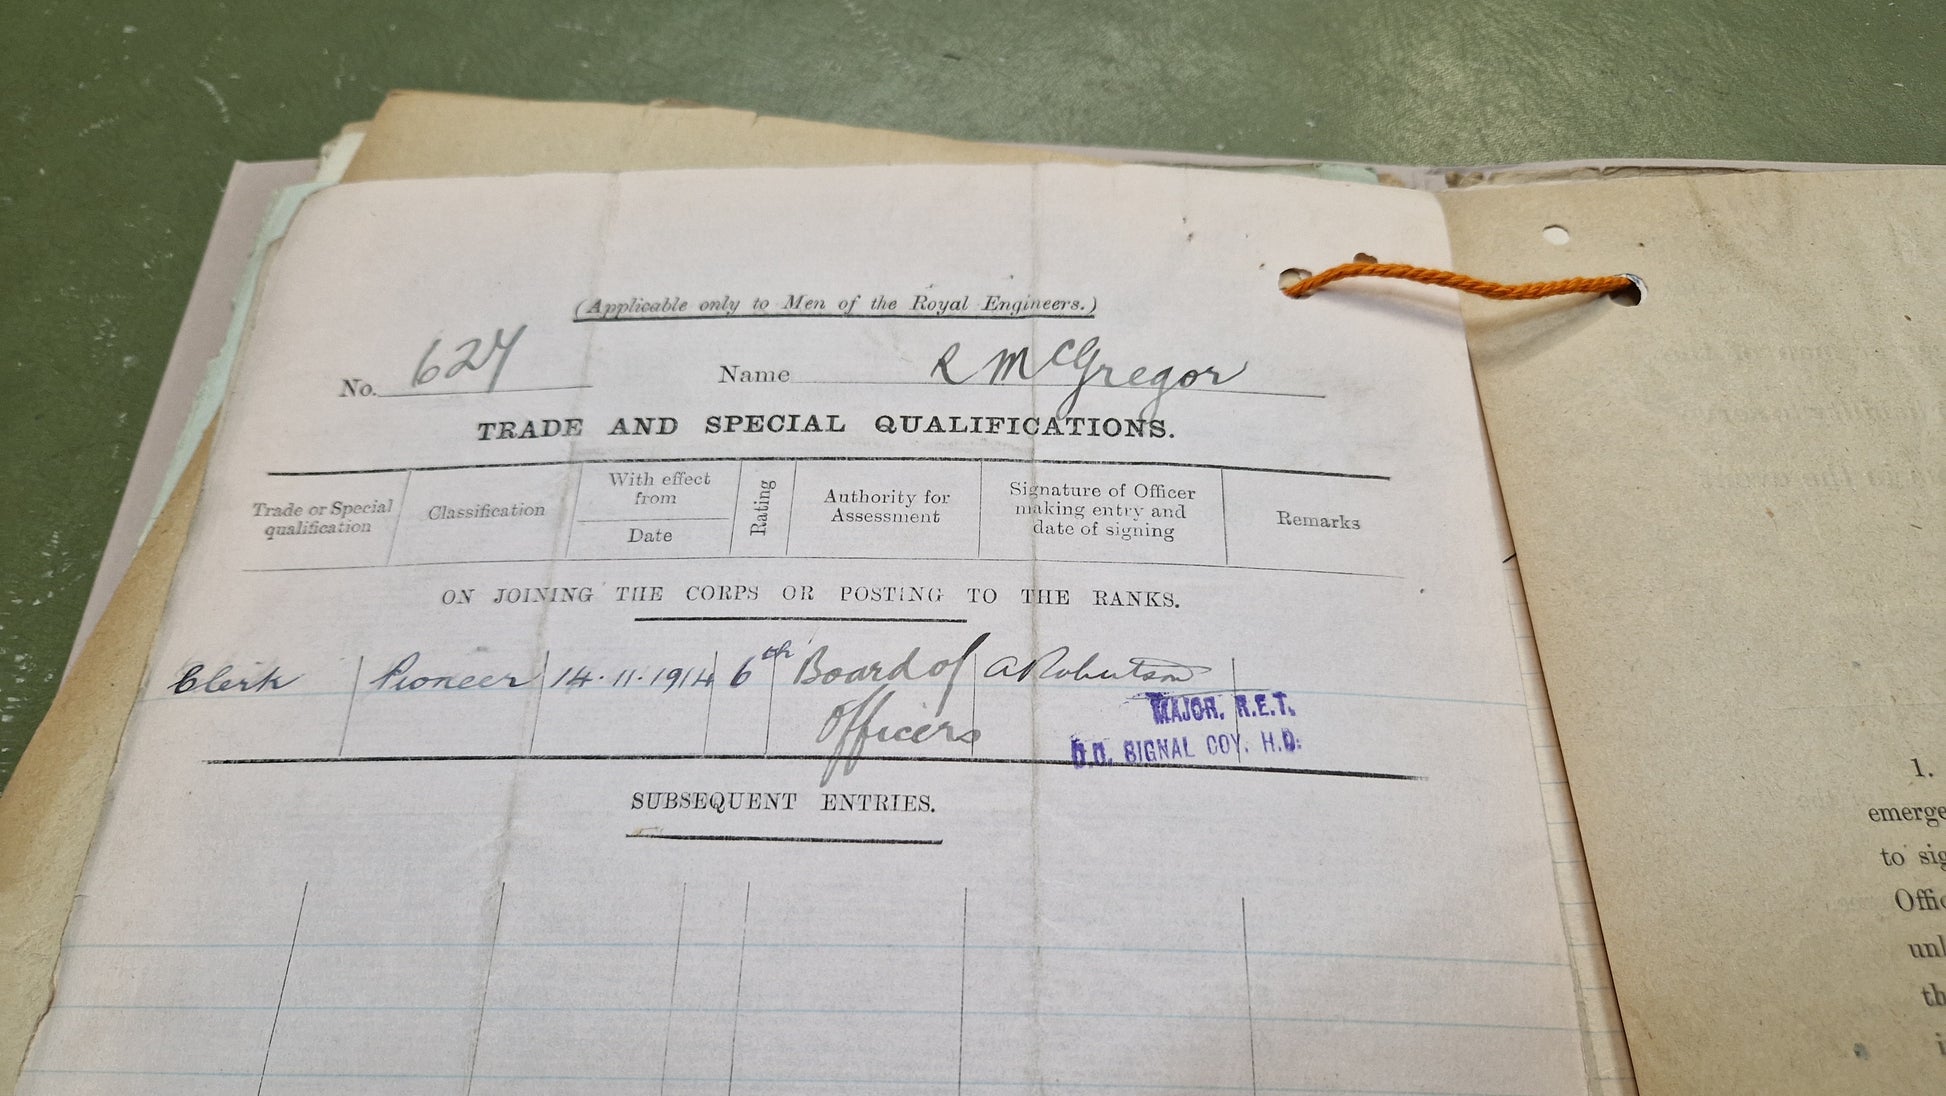 (Applicable only to Men of the Royal Engineers.)
No. 627 Name R McGregor
TRADE AND SPECIAL QUALIFICATIONS.
Trade or Special qualification
Classification
With effect from
Date
Rating
Authority for Assessment
Signature of Officer making entry and date of signing
Remarks
ON JOINING THE CORPS OR POSTING TO THE RANKS.
Clerk Pioneer 14.11.1914 6th Board of A Robertson
Officers
MAJOR. R.E.T.
SIGNAL COY. H.D.
SUBSEQUENT ENTRIES.
1.
emerge
to sig
Offic
unl
th
i